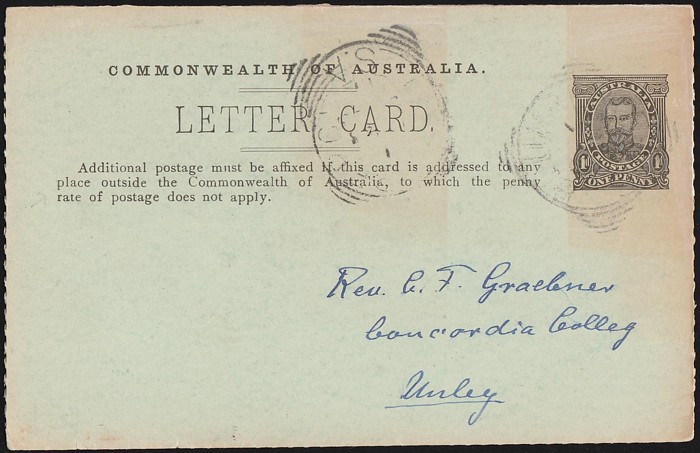 COMMONWEALTH OF AUSTRALIA.
LETTER CARD.
Additional postage must be affixed if this card is addressed to any
place outside the Commonwealth of Australia, to which the penny
rate of postage does not apply.
AUSTRALIA
POSTAGE
1D 1D
ONE PENNY
S.A
Rev. C. F. Graebner
Concordia Colleg
Unley